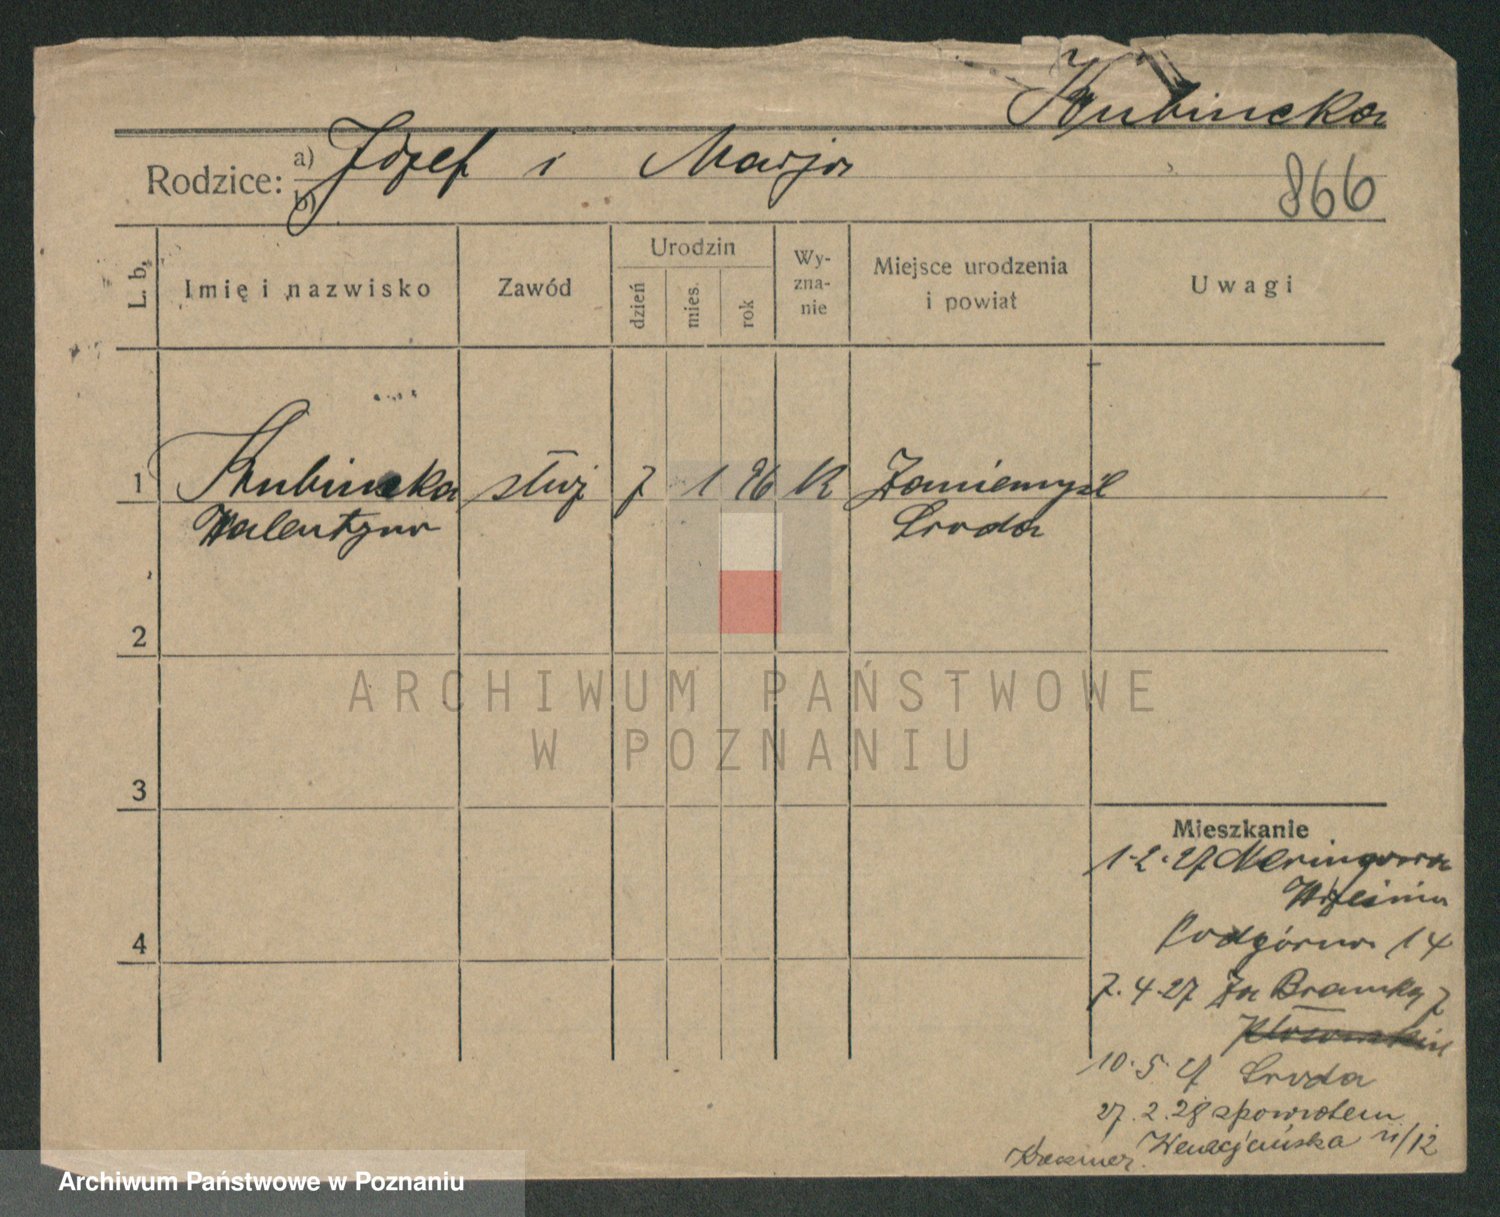 Rodzice: a) Józef i Marja
b)
866
L. b.
Imię i nazwisko
Zawód
Urodzin
dzień
mies.
rok
Wy-
zna-
nie
Miejsce urodzenia
i powiat
Uwagi
1
służ
7 1 96 K
Zaniemyśl
Walentyna
Środa
2
3
4
ARCHIWUM PAŃSTWOWE
W POZNANIU
Mieszkanie
1.2.27
Września
Podgórna 14
7.4.27 Za Bramką 7
10.5.27 Środa
27.2.28 zpowrotem
Wenecjańska 11/12
Archiwum Państwowe w Poznaniu